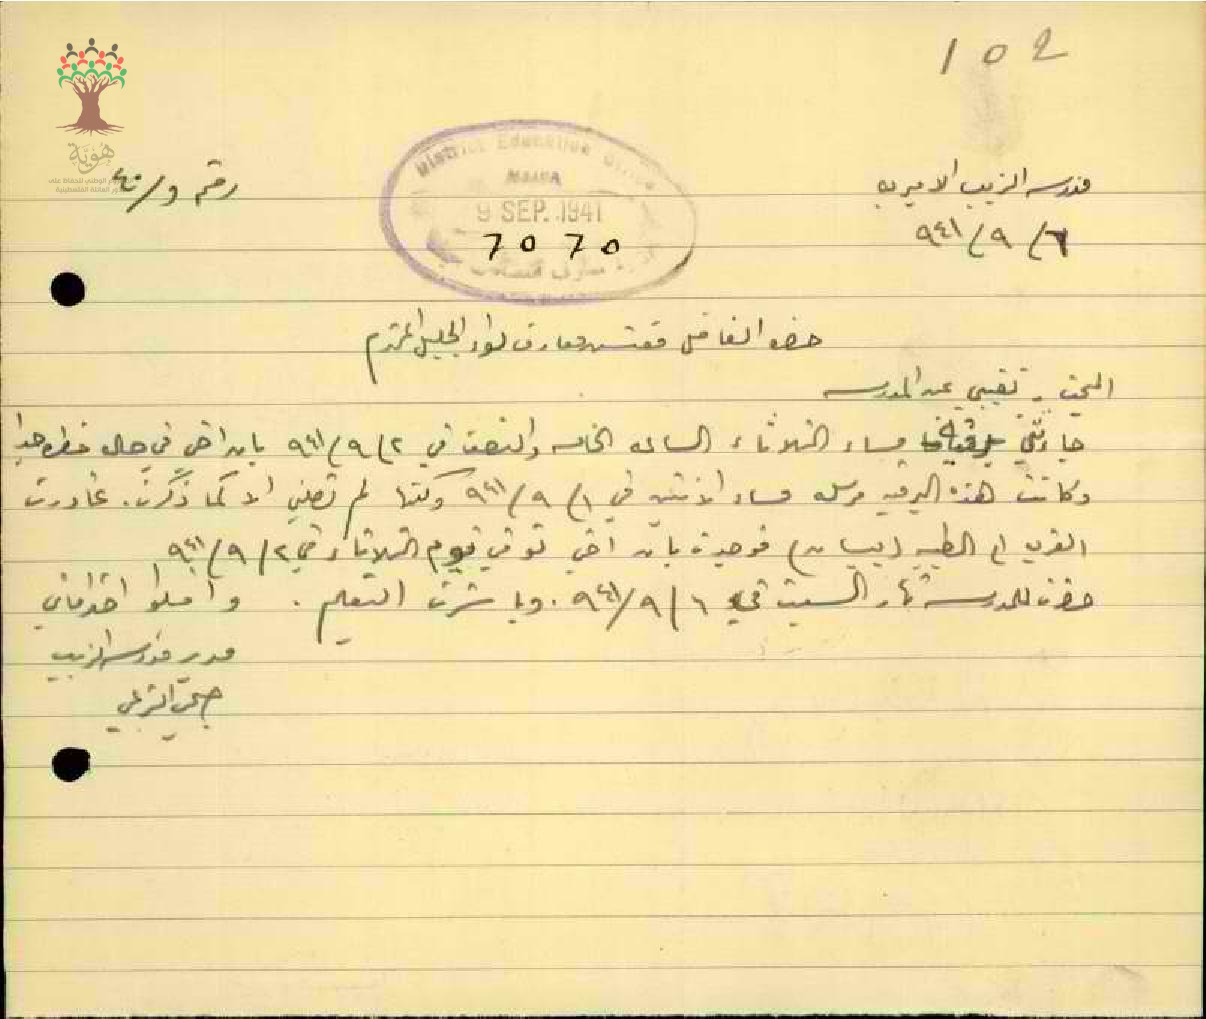 102
مدرسة الزيب الاميرية
رقم و/٤٠
District Education Office
HAIFA
9 SEP. 1941
7070
٦/٩/٩٤١
هُويَّة
حضرة الفاضل مفتش معارف لواء الجليل المحترم
تغيبي عن المدرسة
جاءتني برقية مساء الثلاثاء الساعة الخامسة والنصف في ٢/٩/٩٤١ بان اخي في حال خطرة جدا
وكانت هذه البرقية مرسلة مساء الاثنين في ١/٩/٩٤١ ولكنها لم تصلني الا كما ذكرت. غادرت
القرية الى الطيبة (بيسان) فوجدت بان اخي توفي يوم الثلاثاء في ٢/٩/٩٤١
حضرت للمدرسة نهار السبت في ٦/٩/٩٤١. وباشرت التعليم. واقبلوا احترامي
مدير مدرسة الزيب